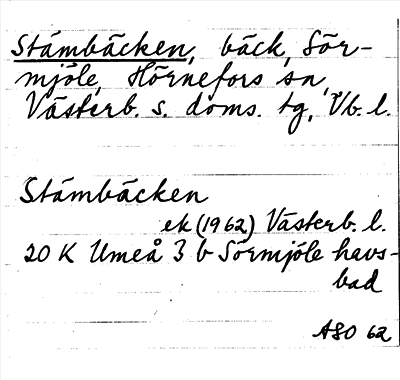 Stämbäcken, bäck, Sör-
mjöle, Hörnefors sn,
Västerb. s. doms. tg, Vb. l.
Stämbäcken
ek (1962) Västerb. l.
20 K Umeå 3 b Sörmjöle havs-
bad
ASO 62